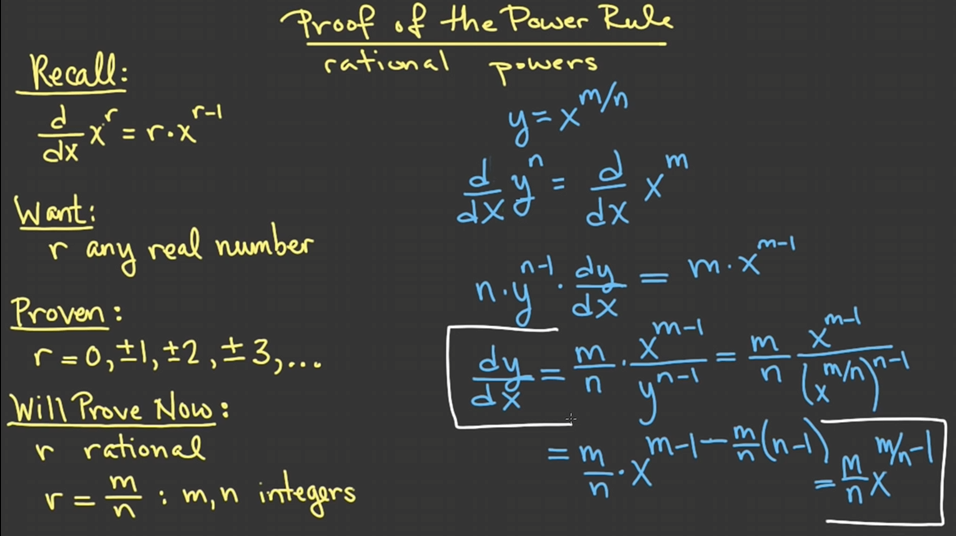 Proof of the Power Rule
rational powers
Recall:
d/dx x^r = r·x^(r-1)
Want:
r any real number
Proven:
r = 0, ±1, ±2, ±3, ...
Will Prove Now:
r rational
r = m/n : m, n integers
y = x^(m/n)
d/dx y^n = d/dx x^m
n·y^(n-1)·dy/dx = m·x^(m-1)
dy/dx = m/n · x^(m-1)/y^(n-1) = m/n x^(m-1)/(x^(m/n))^(n-1)
= m/n · x^(m-1-m/n(n-1)) = m/n x^(m/n-1)